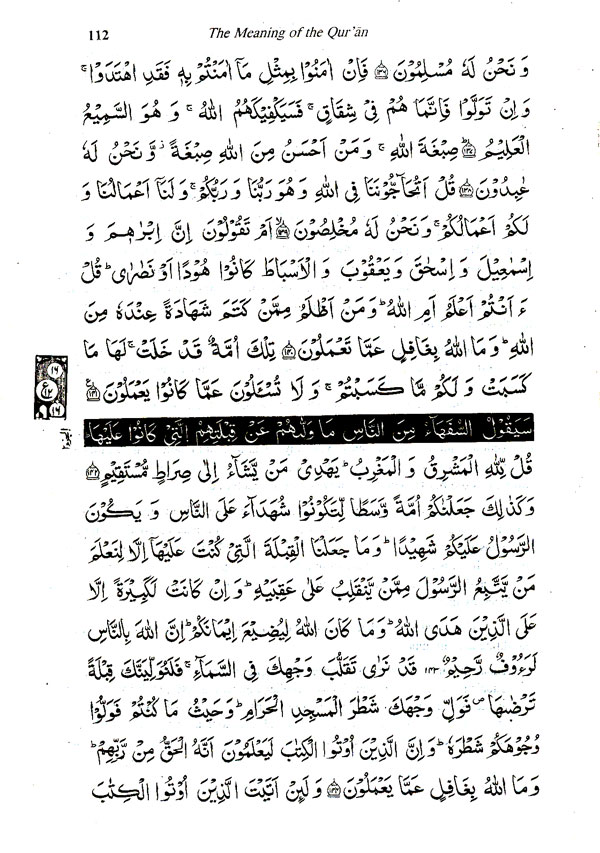 112
The Meaning of the Qur'ān
وَ نَحْنُ لَهٗ مُسْلِمُوْنَ ﴿۱۳۶﴾ فَاِنْ اٰمَنُوْا بِمِثْلِ مَاۤ اٰمَنْتُمْ بِهٖ فَقَدِ اهْتَدَوْا ۚ
وَ اِنْ تَوَلَّوْا فَاِنَّمَا هُمْ فِيْ شِقَاقٍ ۚ فَسَيَكْفِيْكَهُمُ اللهُ ۚ وَ هُوَ السَّمِيْعُ
الْعَلِيْمُ ﴿۱۳۷﴾ صِبْغَةَ اللهِ ۚ وَ مَنْ اَحْسَنُ مِنَ اللهِ صِبْغَةً ۫ وَّ نَحْنُ لَهٗ
عٰبِدُوْنَ ﴿۱۳۸﴾ قُلْ اَتُحَآجُّوْنَنَا فِي اللهِ وَ هُوَ رَبُّنَا وَ رَبُّكُمْ ۚ وَ لَنَاۤ اَعْمَالُنَا وَ
لَكُمْ اَعْمَالُكُمْ ۚ وَ نَحْنُ لَهٗ مُخْلِصُوْنَ ﴿۱۳۹﴾ اَمْ تَقُوْلُوْنَ اِنَّ اِبْرٰهٖمَ وَ
اِسْمٰعِيْلَ وَ اِسْحٰقَ وَ يَعْقُوْبَ وَ الْاَسْبَاطَ كَانُوْا هُوْدًا اَوْ نَصٰرٰى ؕ قُلْ
ءَ اَنْتُمْ اَعْلَمُ اَمِ اللهُ ؕ وَ مَنْ اَظْلَمُ مِمَّنْ كَتَمَ شَهَادَةً عِنْدَهٗ مِنَ
اللهِ ؕ وَ مَا اللهُ بِغَافِلٍ عَمَّا تَعْمَلُوْنَ ﴿۱۴۰﴾ تِلْكَ اُمَّةٌ قَدْ خَلَتْ ۚ لَهَا مَا
كَسَبَتْ وَ لَكُمْ مَّا كَسَبْتُمْ ۚ وَ لَا تُسْـَٔلُوْنَ عَمَّا كَانُوْا يَعْمَلُوْنَ ﴿۱۴۱﴾
سَيَقُوْلُ السُّفَهَآءُ مِنَ النَّاسِ مَا وَلّٰىهُمْ عَنْ قِبْلَتِهِمُ الَّتِيْ كَانُوْا عَلَيْهَا
قُلْ لِّلّٰهِ الْمَشْرِقُ وَ الْمَغْرِبُ ؕ يَهْدِيْ مَنْ يَّشَآءُ اِلٰى صِرَاطٍ مُّسْتَقِيْمٍ ﴿۱۴۲﴾
وَ كَذٰلِكَ جَعَلْنٰكُمْ اُمَّةً وَّسَطًا لِّتَكُوْنُوْا شُهَدَآءَ عَلَى النَّاسِ وَ يَكُوْنَ
الرَّسُوْلُ عَلَيْكُمْ شَهِيْدًا ؕ وَ مَا جَعَلْنَا الْقِبْلَةَ الَّتِيْ كُنْتَ عَلَيْهَاۤ اِلَّا لِنَعْلَمَ
مَنْ يَّتَّبِعُ الرَّسُوْلَ مِمَّنْ يَّنْقَلِبُ عَلٰى عَقِبَيْهِ ؕ وَ اِنْ كَانَتْ لَكَبِيْرَةً اِلَّا
عَلَى الَّذِيْنَ هَدَى اللهُ ؕ وَ مَا كَانَ اللهُ لِيُضِيْعَ اِيْمَانَكُمْ ؕ اِنَّ اللهَ بِالنَّاسِ
لَرَءُوْفٌ رَّحِيْمٌ ۱۴۳ قَدْ نَرٰى تَقَلُّبَ وَجْهِكَ فِي السَّمَآءِ ۚ فَلَنُوَلِّيَنَّكَ قِبْلَةً
تَرْضٰىهَا ۪ فَوَلِّ وَجْهَكَ شَطْرَ الْمَسْجِدِ الْحَرَامِ ؕ وَ حَيْثُ مَا كُنْتُمْ فَوَلُّوْا
وُجُوْهَكُمْ شَطْرَهٗ ؕ وَ اِنَّ الَّذِيْنَ اُوْتُوا الْكِتٰبَ لَيَعْلَمُوْنَ اَنَّهُ الْحَقُّ مِنْ رَّبِّهِمْ ؕ
وَ مَا اللهُ بِغَافِلٍ عَمَّا يَعْمَلُوْنَ ﴿۱۴۴﴾ وَ لَئِنْ اَتَيْتَ الَّذِيْنَ اُوْتُوا الْكِتٰبَ